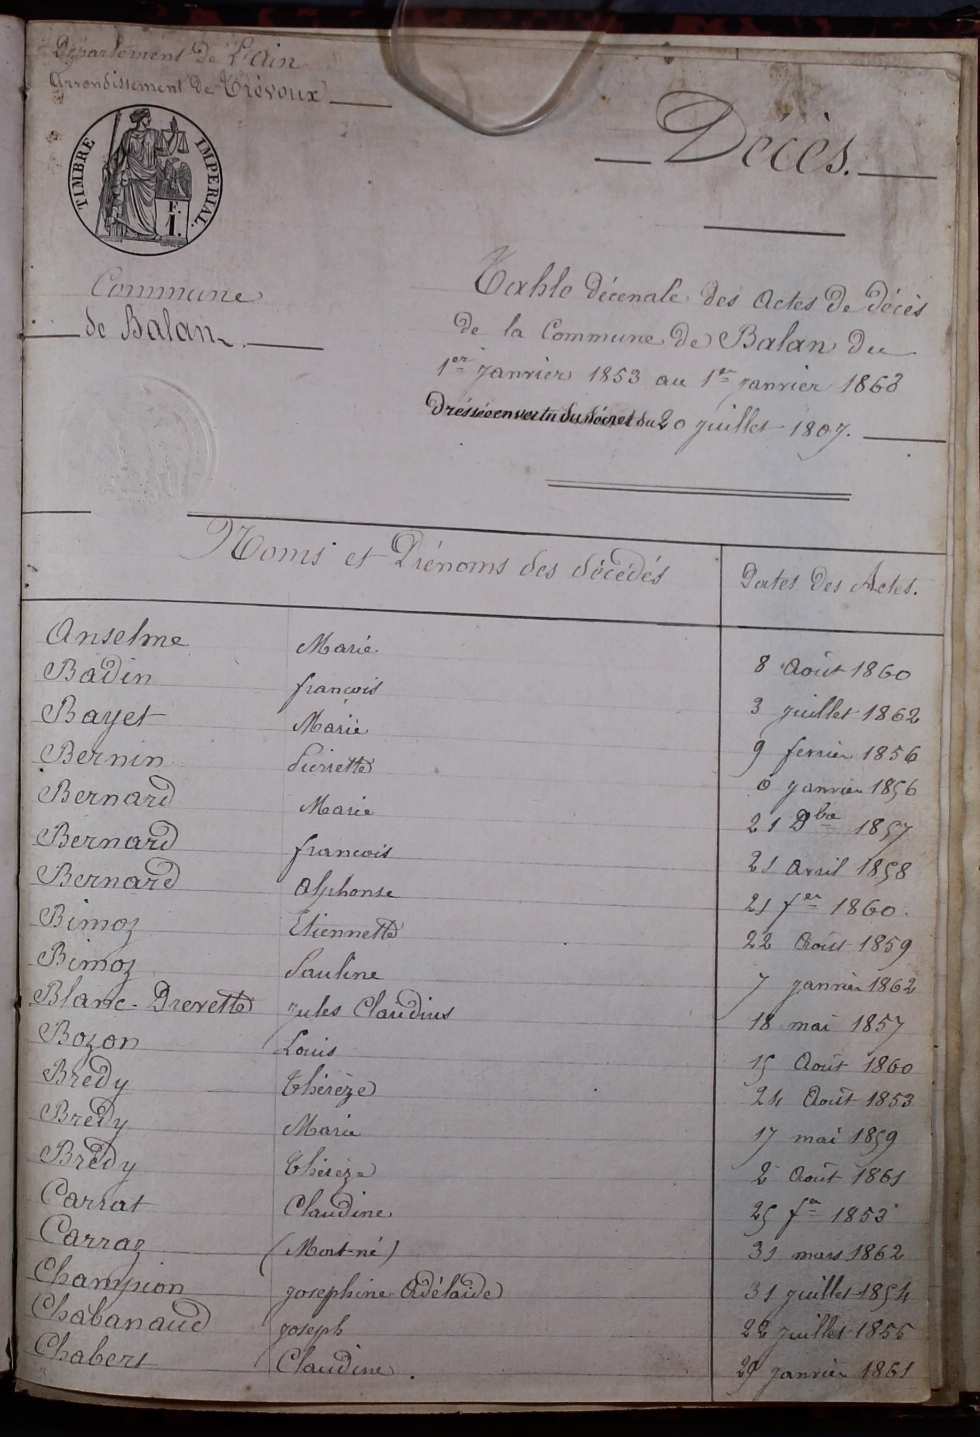 Département de l'Ain
Arrondissement de Trévoux
TIMBRE IMPERIAL.
F.
1.
Décès.
Commune
de Balan.
Table décenale des Actes de décès
de la Commune de Balan du
1er Janvier 1853 au 1er Janvier 1863
Dressée en vertu du décret du 20 juillet 1807.
Noms et Prénoms des décédés
Dates des Actes.
Anselme Marie 8 Août 1860
Badin françois 3 juillet 1862
Bayet Marie 9 fevrier 1856
Bernin Pierrette 6 janvier 1856
Bernard Marie 21 Dbre 1857
Bernard francois 21 avril 1858
Bernard Alphonse 21 fer 1860
Bimoz Etiennette 22 Août 1859
Bimoz Pauline 7 janvier 1862
Blanc-Drevette Jules Claudius 18 mai 1857
Bozon Louis 15 Août 1860
Bredy Thérèze 24 Août 1853
Bredy Marie 17 mai 1859
Bredy Thérèze 2 Août 1861
Carrat Claudine 25 fer 1853
Carraz (Mort-né) 31 mars 1862
Champion Josephine Adélaide 31 juillet 1854
Chabanaud Joseph 22 juillet 1855
Chabert Claudine 29 janvier 1861